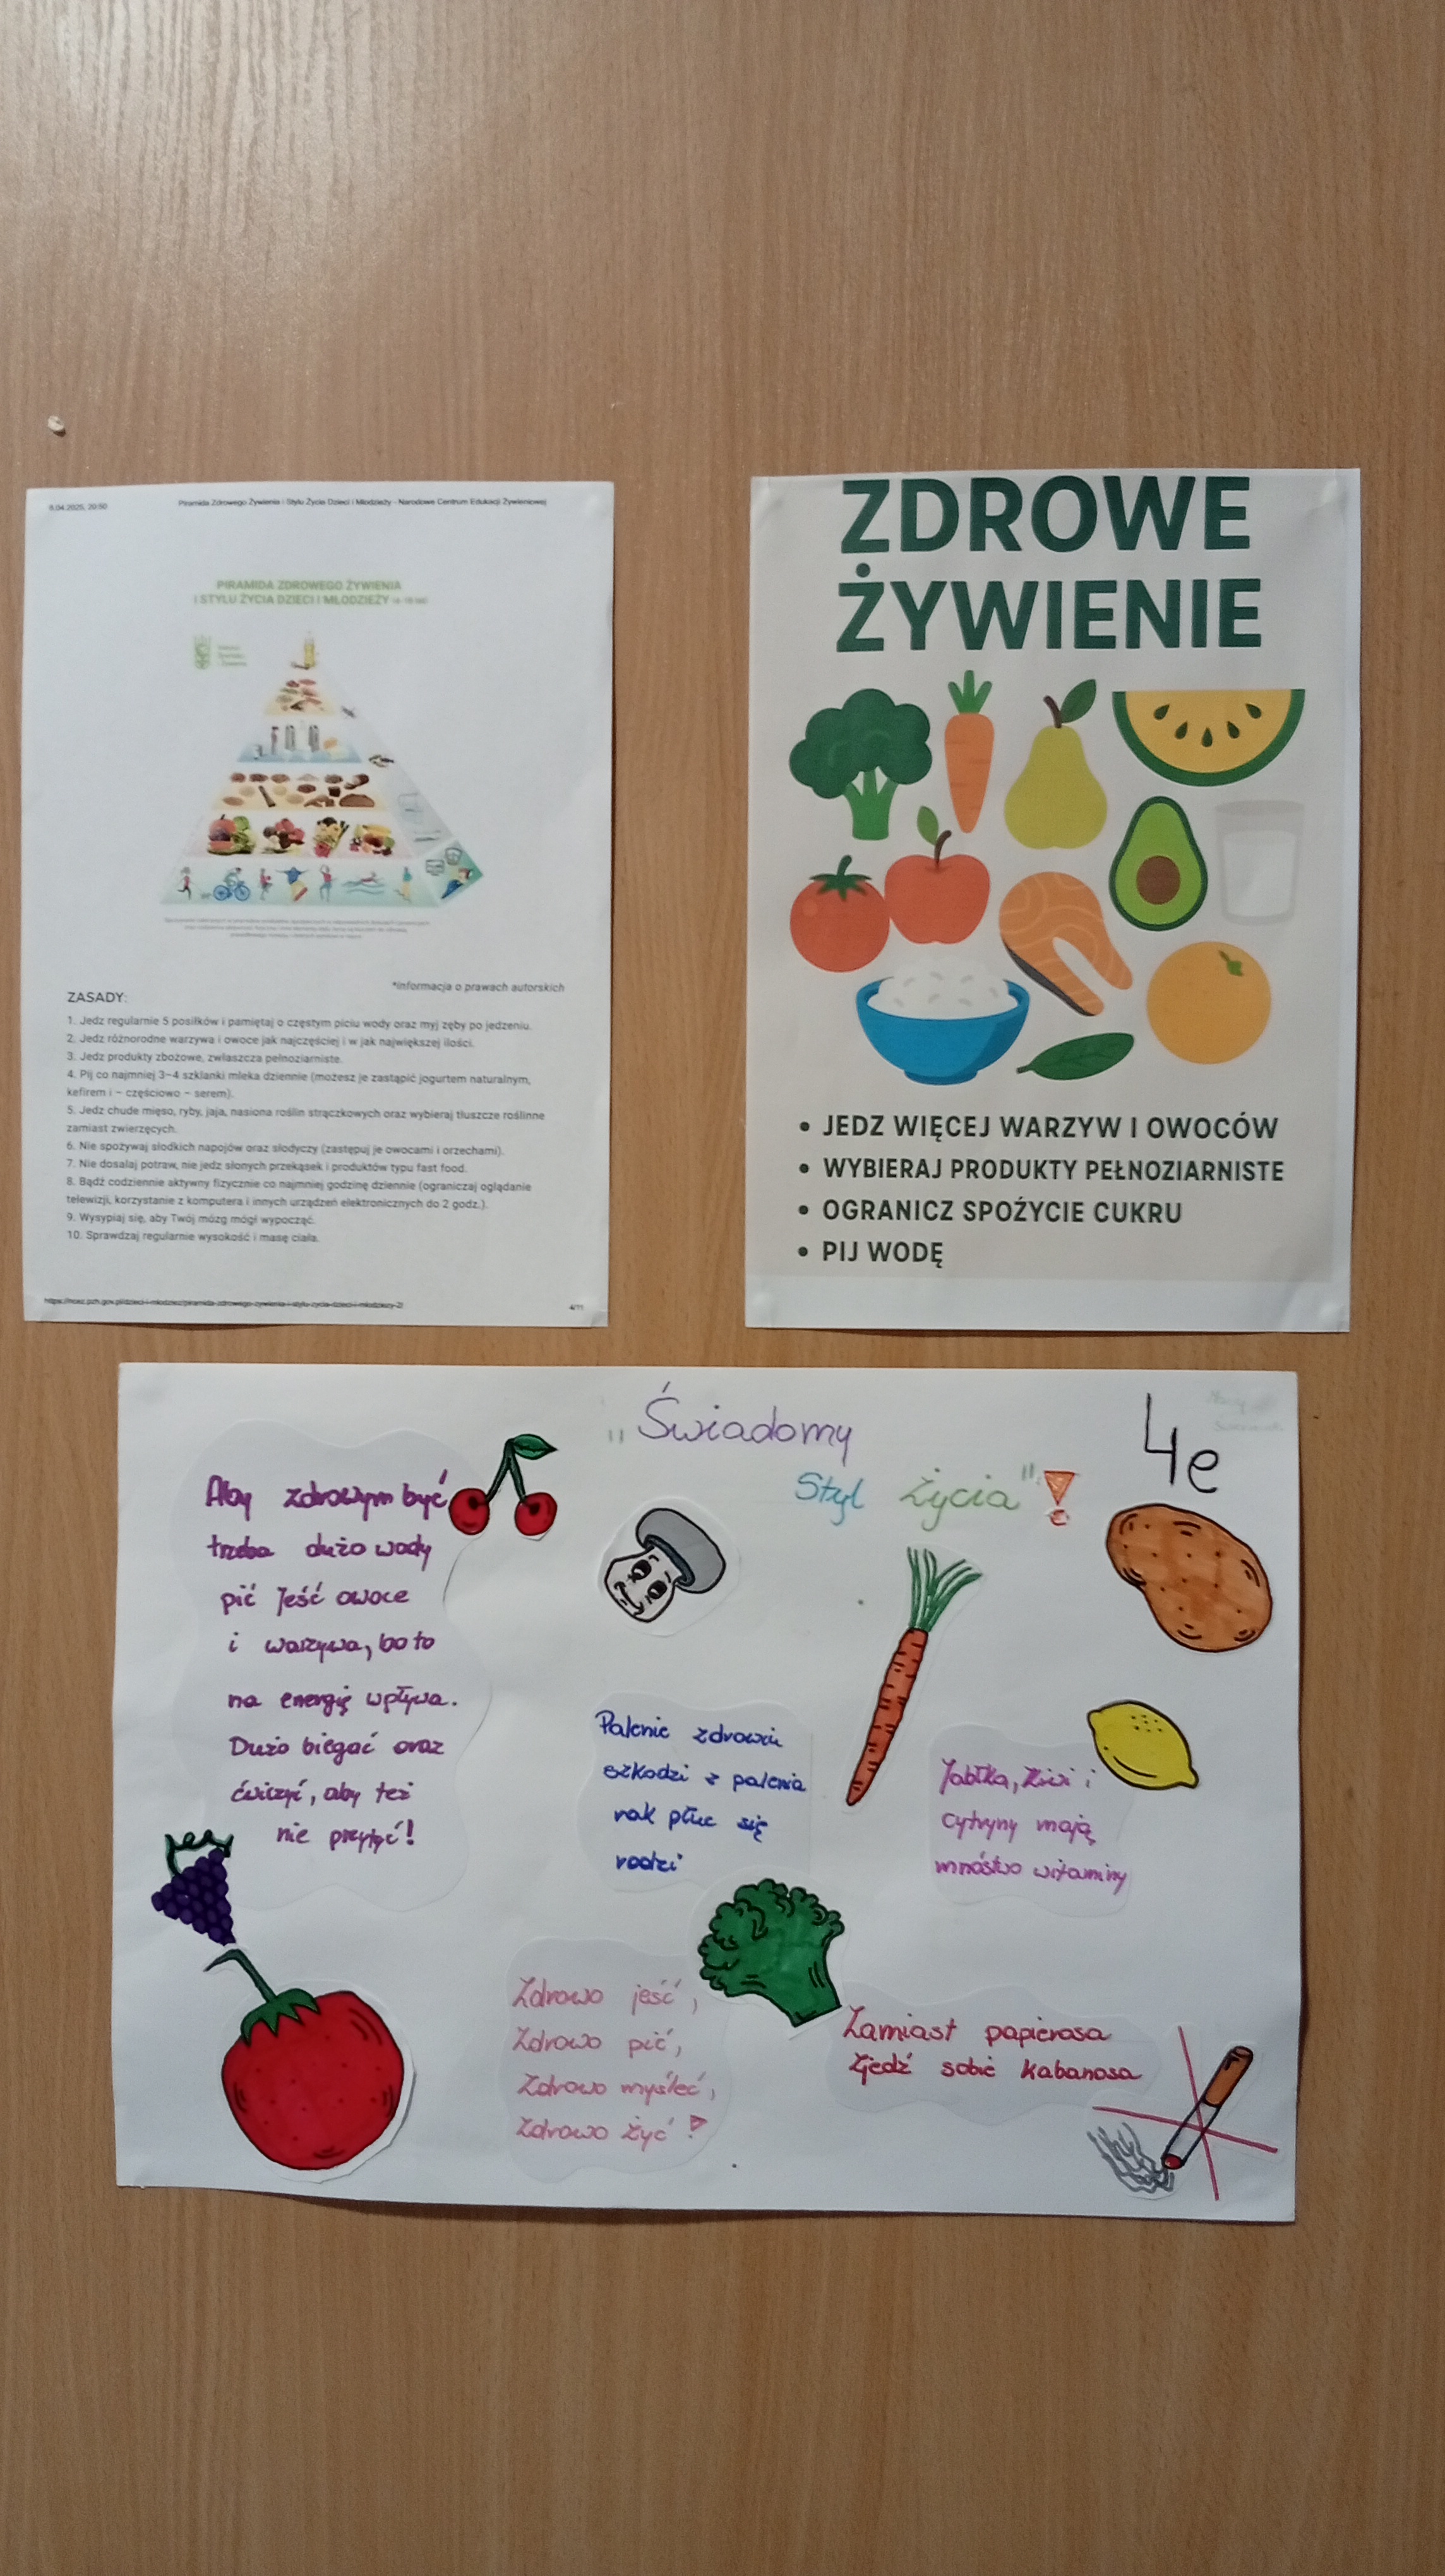 6.04.2025, 20:50
Piramida Zdrowego Żywienia i Stylu Życia Dzieci i Młodzieży - Narodowe Centrum Edukacji Żywieniowej
PIRAMIDA ZDROWEGO ŻYWIENIA
I STYLU ŻYCIA DZIECI I MŁODZIEŻY
*informacja o prawach autorskich
ZASADY:
1. Jedz regularnie 5 posiłków i pamiętaj o częstym piciu wody oraz myj zęby po jedzeniu.
2. Jedz różnorodne warzywa i owoce jak najczęściej i w jak największej ilości.
3. Jedz produkty zbożowe, zwłaszcza pełnoziarniste.
4. Pij co najmniej 3–4 szklanki mleka dziennie (możesz je zastąpić jogurtem naturalnym,
kefirem i – częściowo – serem).
5. Jedz chude mięso, ryby, jaja, nasiona roślin strączkowych oraz wybieraj tłuszcze roślinne
zamiast zwierzęcych.
6. Nie spożywaj słodkich napojów oraz słodyczy (zastępuj je owocami i orzechami).
7. Nie dosalaj potraw, nie jedz słonych przekąsek i produktów typu fast food.
8. Bądź codziennie aktywny fizycznie co najmniej godzinę dziennie (ograniczaj oglądanie
telewizji, korzystanie z komputera i innych urządzeń elektronicznych do 2 godz.).
9. Wysypiaj się, aby Twój mózg mógł wypocząć.
10. Sprawdzaj regularnie wysokość i masę ciała.
https://ncez.pzh.gov.pl/dzieci-i-mlodziez/piramida-zdrowego-zywienia-i-stylu-zycia-dzieci-i-mlodziezy-2/
4/11
ZDROWE
ŻYWIENIE
• JEDZ WIĘCEJ WARZYW I OWOCÓW
• WYBIERAJ PRODUKTY PEŁNOZIARNISTE
• OGRANICZ SPOŹYCIE CUKRU
• PIJ WODĘ
„Świadomy
Styl Życia"!
4e
Aby zdrowym być
trzeba dużo wody
pić Jeść owoce
i warzywa, bo to
na energię wpływa.
Dużo biegać oraz
ćwiczyć, aby też
nie przytyć!
Palenie zdrowiu
szkodzi z palenia
rak płuc się
rodzi
Jabłka, Kiwi i
cytryny mają
mnóstwo witaminy
Zdrowo jeść,
Zdrowo pić,
Zdrowo myśleć,
Zdrowo żyć!
Zamiast papierosa
Zjedź sobie kabanosa